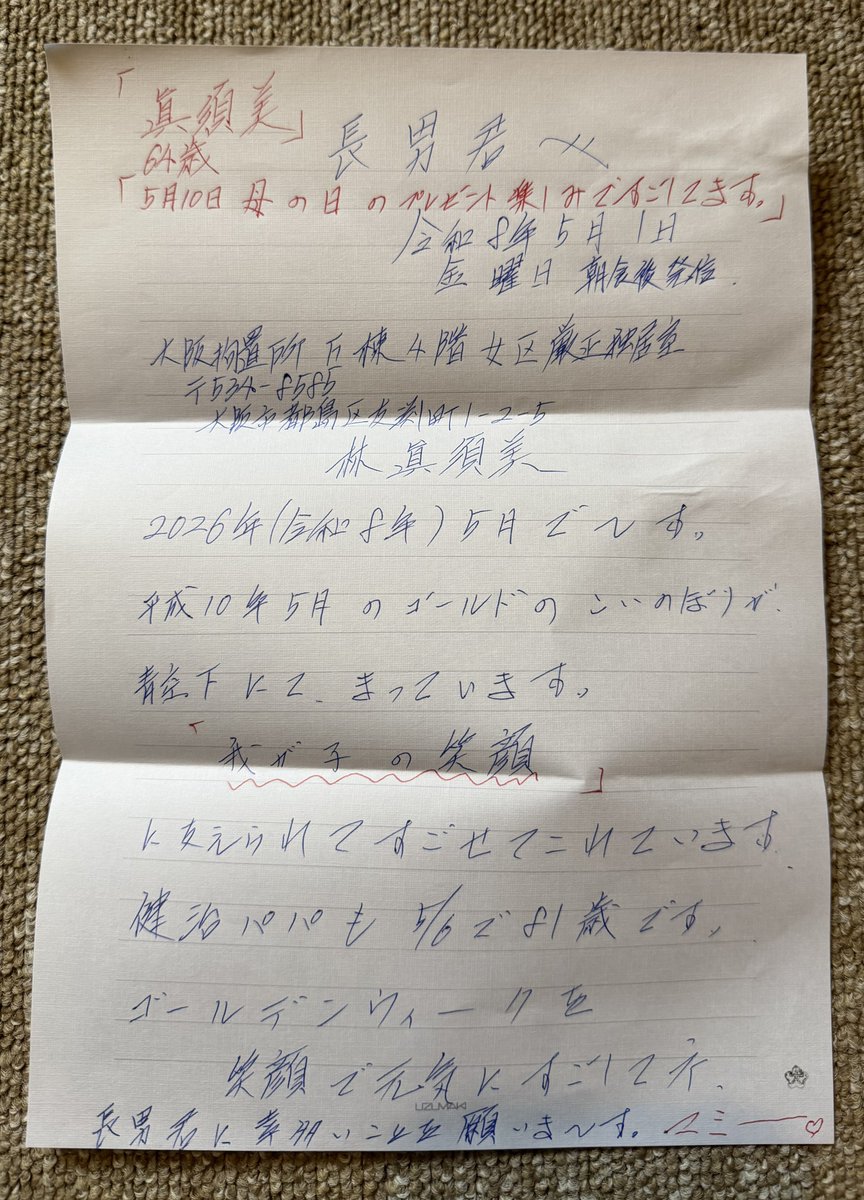 「眞須美」
64歳
長男君へ
「5月10日 母の日のプレゼント楽しみですごしてます。」
令和8年5月1日
金曜日 朝食後発信.
大阪拘置所 丘棟4階女区厳正独居室
〒534-8585
大阪市都島区友渕町1-2-5
林眞須美
2026年(令和8年)5月で〜す。
平成10年5月のゴールドのこいのぼりが、
青空下にて、まっています。
「我が子の笑顔」
に支えられてすごせてこれています.
健治パパも5/6で81歳です。
ゴールデンウィークを
笑顔で元気にすごしてネ.
UZUMAKI
長男君に幸多いことを願いま〜す。マミー♡